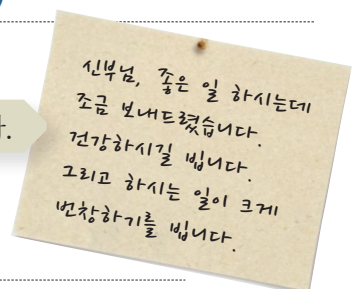 신부님, 좋은 일 하시는데
조금 보내드렸습니다.
건강하시길 빕니다.
그리고 하시는 일이 크게
번창하기를 빕니다.